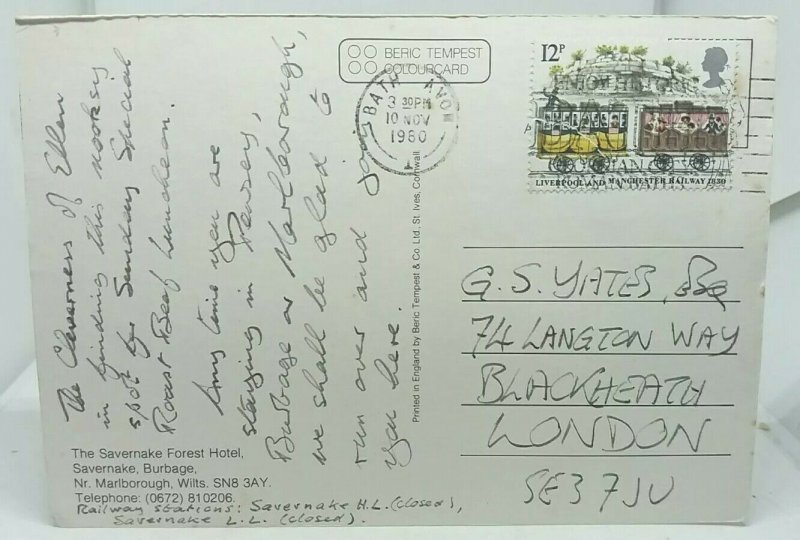 The Cleverness of Ellen
in finding this nooksy
spot for Sunday Special
Roast Beef Luncheon.
Any time you are
staying in Pewsey,
Burbage or Marlborough,
we shall be glad to
run over and join
you here.
The Savernake Forest Hotel,
Savernake, Burbage,
Nr. Marlborough, Wilts. SN8 3AY.
Telephone: (0672) 810206.
Railway stations: Savernake H.L. (closed),
Savernake L.L. (closed).
BERIC TEMPEST
COLOURCARD
Printed in England by Beric Tempest & Co. Ltd., St. Ives, Cornwall.
BATH AVON
3 30PM
10 NOV
1980
12P
LIVERPOOL AND MANCHESTER RAILWAY 1830
G. S. YATES,
74 LANGTON WAY
BLACKHEATH
LONDON
SE3 7JU